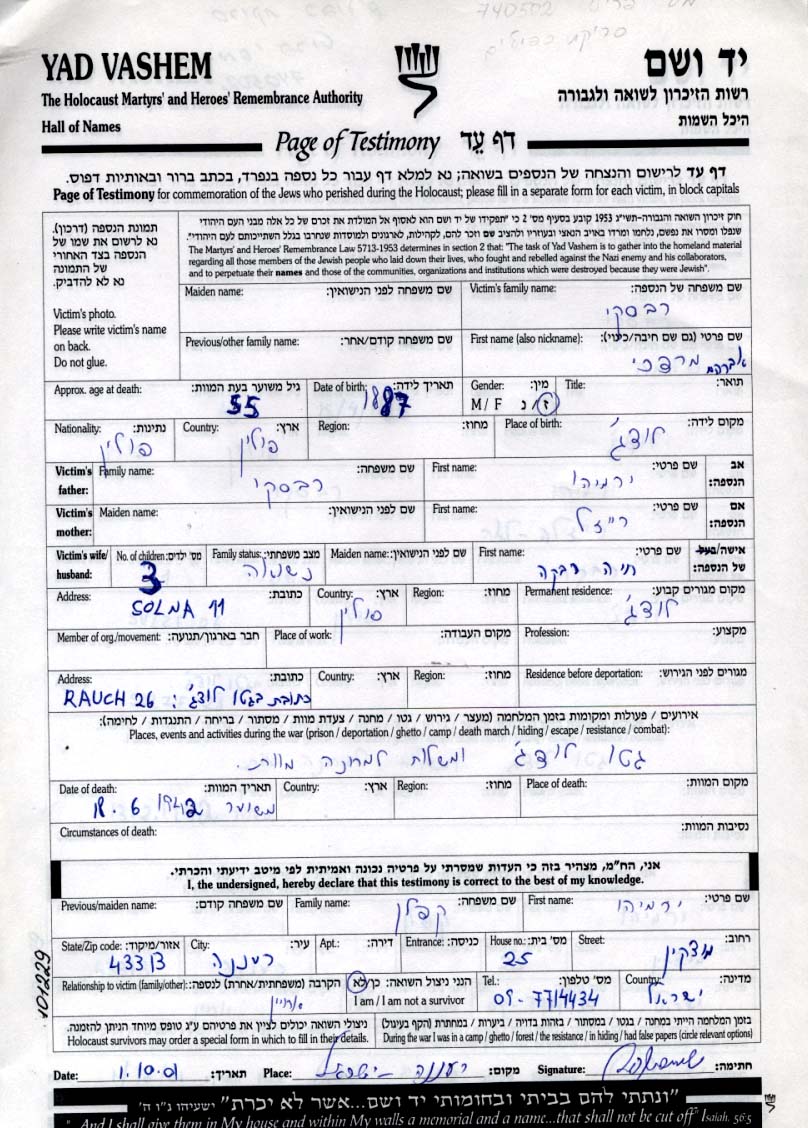 740502
סריקת כפולים
YAD VASHEM
יד ושם
The Holocaust Martyrs' and Heroes' Remembrance Authority
רשות הזיכרון לשואה ולגבורה
Hall of Names
היכל השמות
Page of Testimony דף עד
דף עד לרישום והנצחה של הנספים בשואה; נא למלא דף עבור כל נספה בנפרד, בכתב ברור ובאותיות דפוס.
Page of Testimony for commemoration of the Jews who perished during the Holocaust; please fill in a separate form for each victim, in block capitals
תמונת הנספה (דרכון).
נא לרשום את שמו של
הנספה בצד האחורי
של התמונה
נא לא להדביק.
Victim's photo.
Please write victim's name
on back.
Do not glue.
חוק זיכרון השואה והגבורה-תשי"ג 1953 קובע בסעיף מס' 2 כי "תפקידו של יד ושם הוא לאסוף אל המולדת את זכרם של כל אלה מבני העם היהודי
שנפלו ומסרו את נפשם, נלחמו ומרדו באויב הנאצי ובעוזריו ולהציב שם וזכר להם, לקהילות, לארגונים ולמוסדות שנחרבו בגלל השתייכותם לעם היהודי".
The Martyrs' and Heroes' Remembrance Law 5713-1953 determines in section 2 that: "The task of Yad Vashem is to gather into the homeland material
regarding all those members of the Jewish people who laid down their lives, who fought and rebelled against the Nazi enemy and his collaborators,
and to perpetuate their names and those of the communities, organizations and institutions which were destroyed because they were Jewish".
Maiden name: שם משפחה לפני הנישואין: Victim's family name: שם משפחה של הנספה:
רבסקי
Previous/other family name: שם משפחה קודם/אחר: First name (also nickname): שם פרטי (גם שם חיבה/כינוי):
אברהם מרדכי
Approx. age at death: גיל משוער בעת המוות: Date of birth: תאריך לידה: Gender: מין: Title: תואר:
55 1887 M / F ז / נ
Nationality: נתינות: Country: ארץ: Region: מחוז: Place of birth: מקום לידה:
פולין פולין לודג'
Victim's father: Family name: שם משפחה: First name: שם פרטי: אב הנספה:
רבסקי ירמיהו
Victim's mother: Maiden name: שם לפני הנישואין: First name: שם פרטי: אם הנספה:
רייזל
Victim's wife/ husband: No. of children: מס' ילדים: Family status: מצב משפחתי: Maiden name: שם לפני הנישואין: First name: שם פרטי: אישה/בעל של הנספה:
3 נשואה חיה רבקה
Address: כתובת: Country: ארץ: Region: מחוז: Permanent residence: מקום מגורים קבוע:
SOLNA 11 פולין לודג'
Member of org./movement: חבר בארגון/תנועה: Place of work: מקום העבודה: Profession: מקצוע:
Address: כתובת: Country: ארץ: Region: מחוז: Residence before deportation: מגורים לפני הגירוש:
RAUCH 26 כתובת בגטו לודג':
אירועים / פעולות ומקומות בזמן המלחמה (מעצר / גירוש / גטו / מחנה / צעדת מוות / מסתור / בריחה / התנגדות / לחימה):
Places, events and activities during the war (prison / deportation / ghetto / camp / death march / hiding / escape / resistance / combat):
גטו לודג' ומשלוח למחנה מוות.
Date of death: תאריך המוות: Country: ארץ: Region: מחוז: Place of death: מקום המוות:
18.6 1942 משוער
Circumstances of death: נסיבות המוות:
אני, הח"מ, מצהיר בזה כי העדות שמסרתי על פרטיה נכונה ואמיתית לפי מיטב ידיעתי והכרתי.
I, the undersigned, hereby declare that this testimony is correct to the best of my knowledge.
Previous/maiden name: שם משפחה קודם: Family name: שם משפחה: First name: שם פרטי:
קפלן ירמיהו
State/Zip code: אזור/מיקוד: City: עיר: Apt.: דירה: Entrance: כניסה: House no.: מס' בית: Street: רחוב:
43313 רעננה 25 מוצקין
Relationship to victim (family/other): הקרבה (משפחתית/אחרת) לנספה: הנני ניצול השואה: כן/לא Tel.: מס' טלפון: Country: מדינה:
אחיין I am / I am not a survivor 09-7714434 ישראל
ניצולי השואה יכולים לציין את פרטיהם ע"ג טופס מיוחד הניתן להזמנה.
Holocaust survivors may order a special form in which to fill in their details.
בזמן המלחמה הייתי במחנה / בגטו / במסתור / בזהות בדויה / ביערות / במחתרת (הקף בעיגול)
During the war I was in a camp / ghetto / forest / the resistance / in hiding / had false papers (circle relevant options)
Date: 1.10.01 תאריך: Place: רעננה ישראל מקום: Signature: חתימה:
"ונתתי להם בביתי ובחומותי יד ושם...אשר לא יכרת" ישעיהו נ"ו ה'
"And I shall give them in My house and within My walls a memorial and a name...that shall not be cut off" Isaiah. 56:5
101229